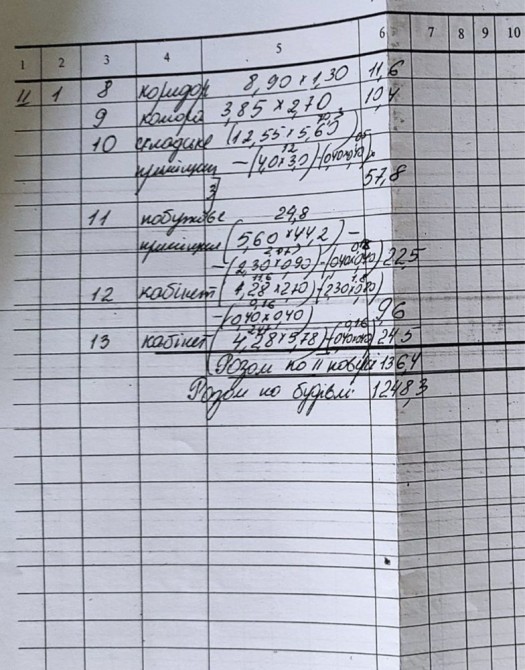 1 2 3 4 5 6 7 8 9 10
II 1 8 коридор 8,90 x 1,30 11,6
9 комора 3,85 x 2,70 10,4
10 складське (12,55 x 5,60)
приміщен -(4,0 x 3,0) -(040x040)
3 57,8
11 побутове 24,8
приміщен (5,60 x 44,2) -
-(2,30 x 0,90) -(040x040) 22,5
12 кабінет (4,28 x 2,70) -(2,30 x
0,16
-(040 x 040) 9,6
13 кабінет (4,28 x 5,78) -(040x040) 24,5
Разом по II поверх 136,4
Разом по будівлі: 1248,3